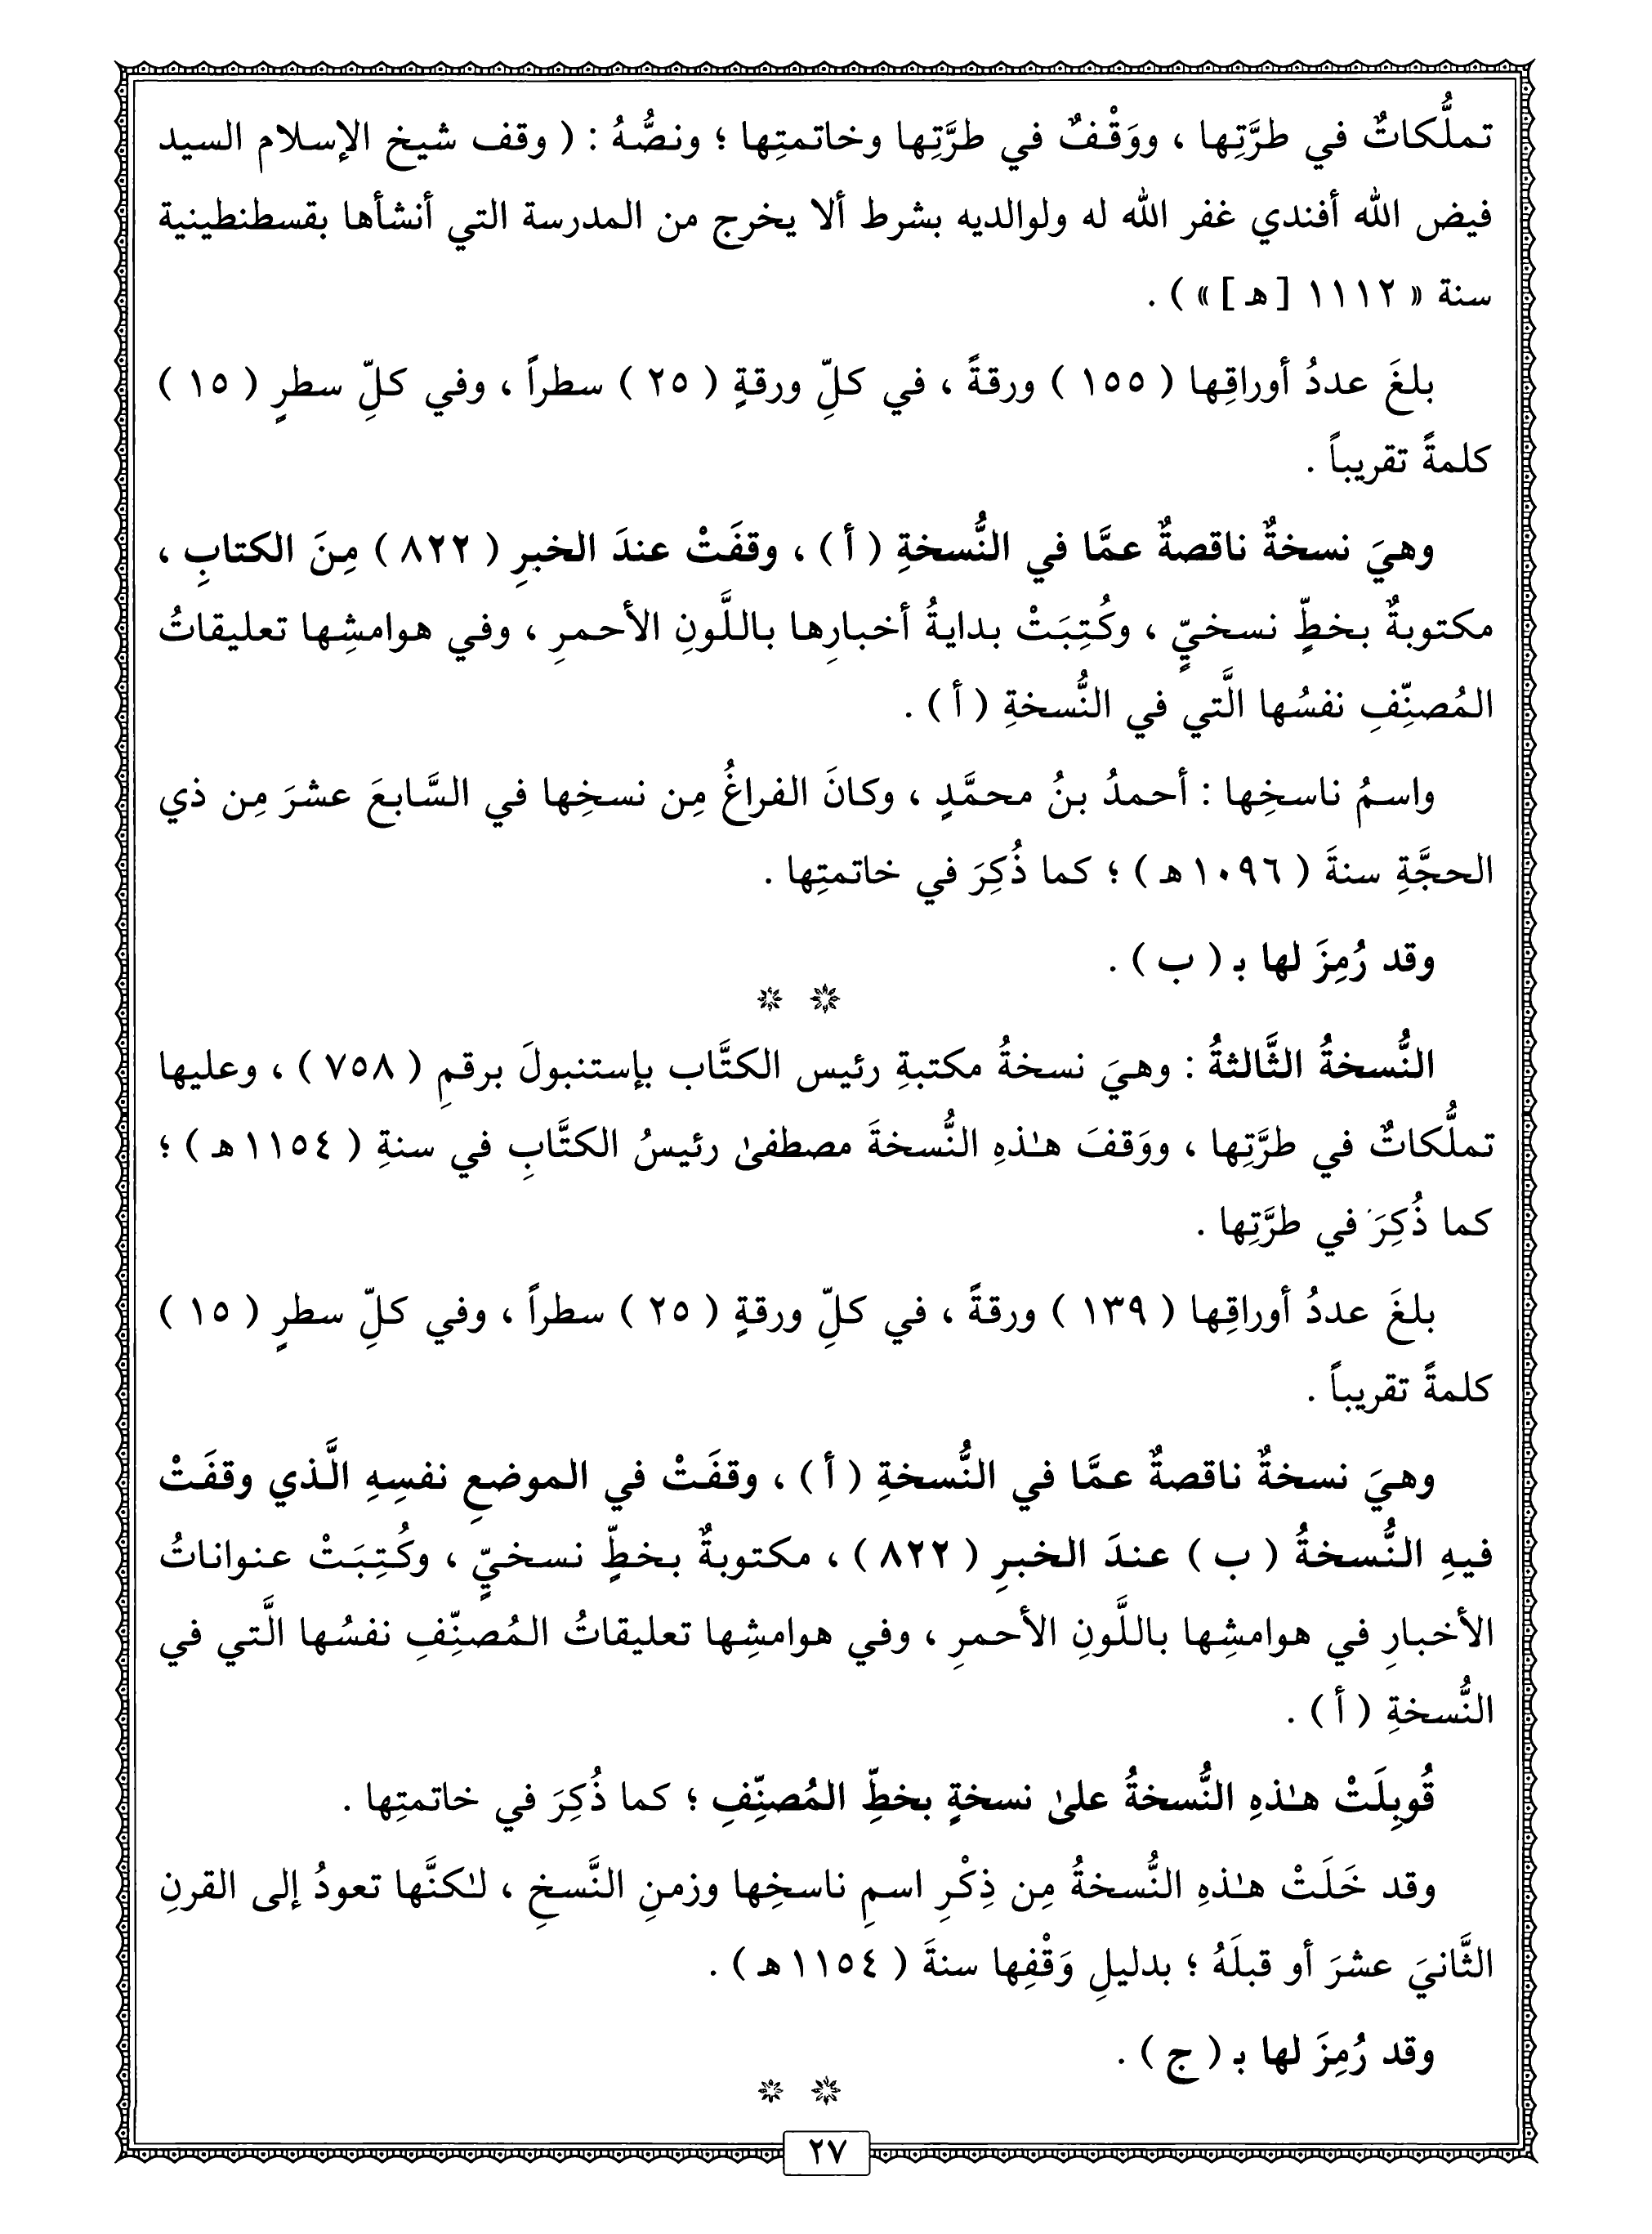 تملُّكاتٌ في طرَّتِها ، ووَقْفٌ في طرَّتِها وخاتمتِها ؛ ونصُّهُ : ( وقف شيخ الإسلام السيد
فيض الله أفندي غفر الله له ولوالديه بشرط ألا يخرج من المدرسة التي أنشأها بقسطنطينية
سنة « ١١١٢ [ هـ ] » ) .
بلغَ عددُ أوراقِها ( ١٥٥ ) ورقةً ، في كلِّ ورقةٍ ( ٢٥ ) سطراً ، وفي كلِّ سطرٍ ( ١٥ )
كلمةً تقريباً .
وهيَ نسخةٌ ناقصةٌ عمَّا في النُّسخةِ ( أ ) ، وقفَتْ عندَ الخبرِ ( ٨٢٢ ) مِنَ الكتابِ ،
مكتوبةٌ بخطٍّ نسخيٍّ ، وكُتِبَتْ بدايةُ أخبارِها باللَّونِ الأحمرِ ، وفي هوامشِها تعليقاتُ
المُصنِّفِ نفسُها الَّتي في النُّسخةِ ( أ ) .
واسمُ ناسخِها : أحمدُ بنُ محمَّدٍ ، وكانَ الفراغُ مِن نسخِها في السَّابعَ عشرَ مِن ذي
الحجَّةِ سنةَ ( ١٠٩٦ هـ ) ؛ كما ذُكِرَ في خاتمتِها .
وقد رُمِزَ لها بـ ( ب ) .
النُّسخةُ الثَّالثةُ : وهيَ نسخةُ مكتبةِ رئيس الكتَّاب بإستنبولَ برقمِ ( ٧٥٨ ) ، وعليها
تملُّكاتٌ في طرَّتِها ، ووَقفَ هـٰذهِ النُّسخةَ مصطفىٰ رئيسُ الكتَّابِ في سنةِ ( ١١٥٤ هـ ) ؛
كما ذُكِرَ في طرَّتِها .
بلغَ عددُ أوراقِها ( ١٣٩ ) ورقةً ، في كلِّ ورقةٍ ( ٢٥ ) سطراً ، وفي كلِّ سطرٍ ( ١٥ )
كلمةً تقريباً .
وهيَ نسخةٌ ناقصةٌ عمَّا في النُّسخةِ ( أ ) ، وقفَتْ في الموضعِ نفسِهِ الَّذي وقفَتْ
فيهِ النُّسخةُ ( ب ) عندَ الخبرِ ( ٨٢٢ ) ، مكتوبةٌ بخطٍّ نسخيٍّ ، وكُتِبَتْ عنواناتُ
الأخبارِ في هوامشِها باللَّونِ الأحمرِ ، وفي هوامشِها تعليقاتُ المُصنِّفِ نفسُها الَّتي في
النُّسخةِ ( أ ) .
قُوبِلَتْ هـٰذهِ النُّسخةُ علىٰ نسخةٍ بخطِّ المُصنِّفِ ؛ كما ذُكِرَ في خاتمتِها .
وقد خَلَتْ هـٰذهِ النُّسخةُ مِن ذِكْرِ اسمِ ناسخِها وزمنِ النَّسخِ ، لـٰكنَّها تعودُ إلى القرنِ
الثَّانيَ عشرَ أو قبلَهُ ؛ بدليلِ وَقْفِها سنةَ ( ١١٥٤ هـ ) .
وقد رُمِزَ لها بـ ( ج ) .
٢٧